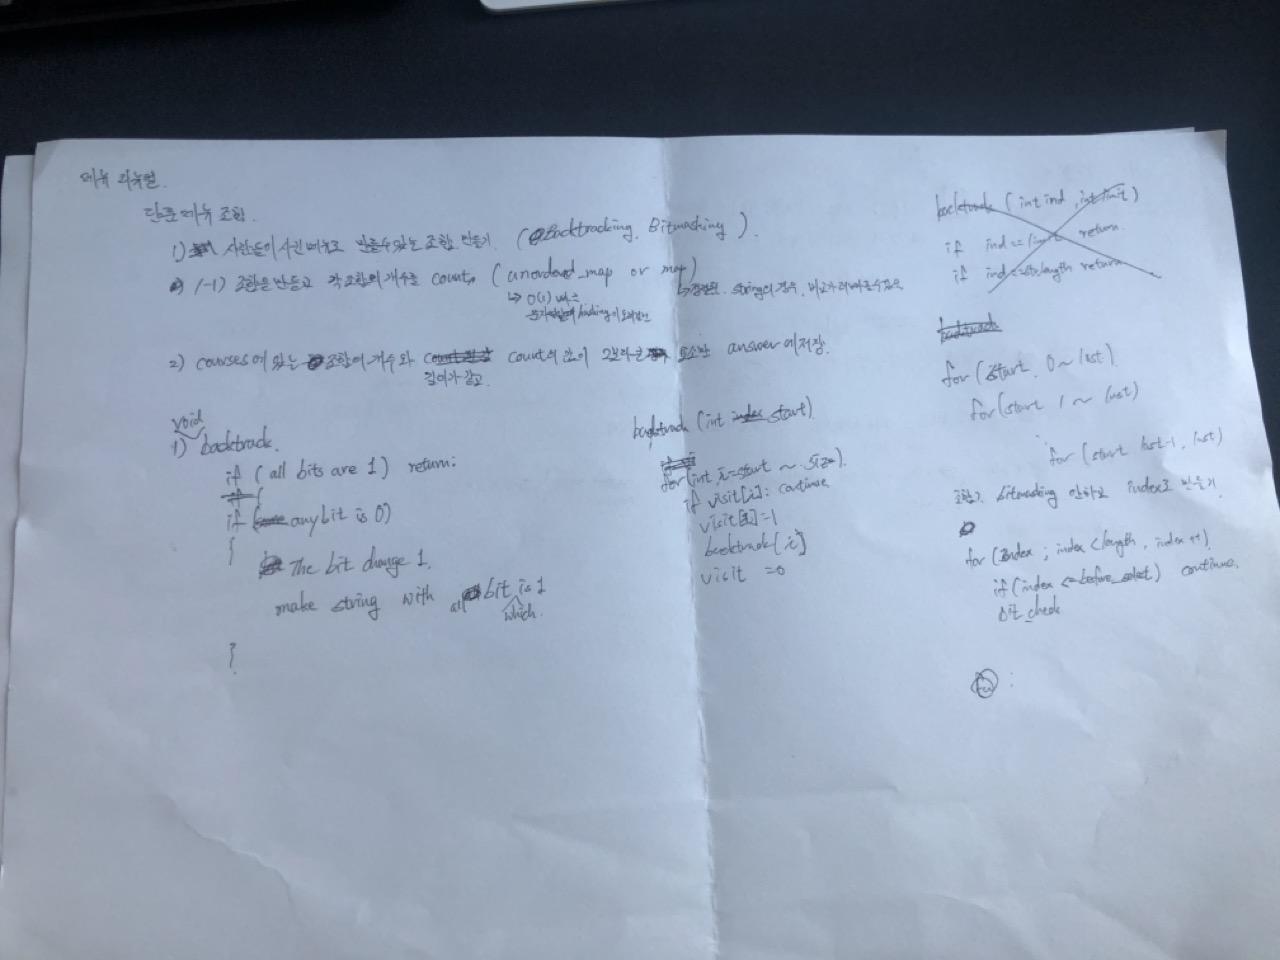 메뉴 리뉴얼.
단품메뉴 조합.
1) 사람들이 시킨 메뉴로 만들수있는 조합 만들기. (Backtracking, Bitmashing).
1-1) 조합을 만들고 각 조합의 개수를 count. (unordered_map or map)
↳ O(1) ↳ string의 경우, 비교가 더 빠를수있음
hashing이
2) courses에 있는 조합의 개수와 count의 값이 2보다 큰 요소만 answer에 저장.
길이가 같고
void
1) backtrack.
if (all bits are 1) return:
if
if (any bit is 0)
{
The bit change 1.
make string with all bit is 1
which.
}
backtrack (int index start)
for(int i=start ~ size).
if visit[i]: continue
visit[i]=1
backtrack[i]
visit =0
backtrack (int ind, int limit)
if ind == limit return.
if ind == str.length return
backtrack
for (start, 0 ~ last)
for(start 1 ~ last)
for (start last-1, last)
조합? bitmashing 안하고 index로 만들기
for (index ; index < length, index ++)
if (index <= before_select) continue.
bit_check
: